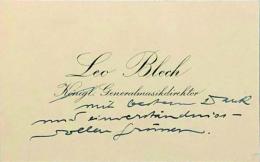 Leo Blech
Königl. Generalmusikdirektor
mit bestem Dank
und einverständniss-
vollen Grüssen.